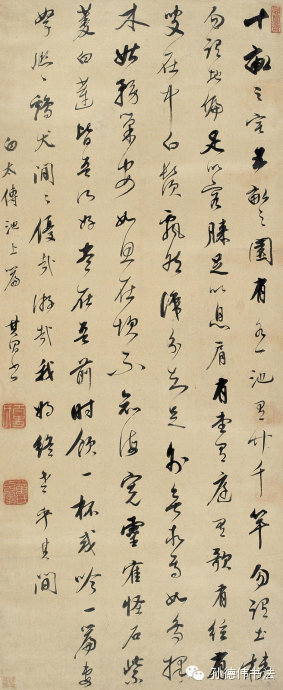 十畝之宅五畝之園有水一池有竹千竿勿謂土狹
勿謂地偏足以容膝足以息肩有堂有庭有歌有絃有
叟在中白鬚飄然識分知足外無求焉如鳥擇
木姑務巢安如龜在坎不知海寬靈寉怪石紫
菱白蓮皆吾所好盡在吾前時飲一杯或吟一篇妻
孥熙熙鷄犬閒閒優哉游哉我將終老乎其間
白太傅池上篇 其昌書
孙德伟书法